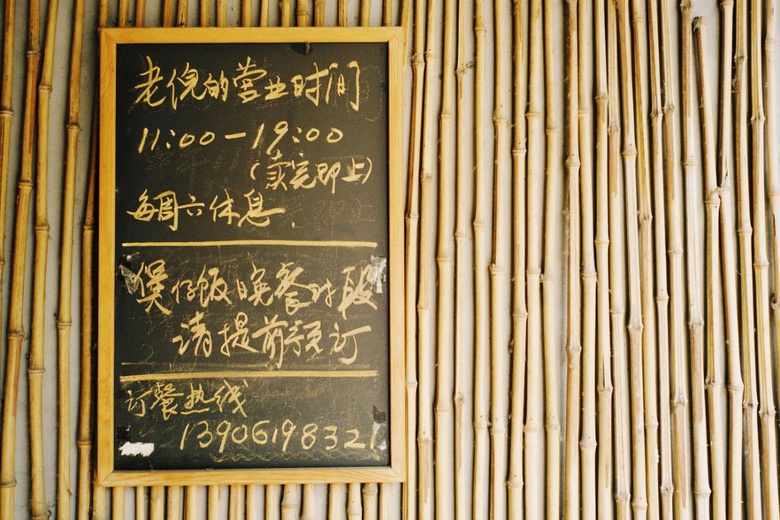 老倪的营业时间
11:00-19:00
(卖完即止)
每周六休息.
煲仔饭晚餐时段
请提前预订
订餐热线
13906198321